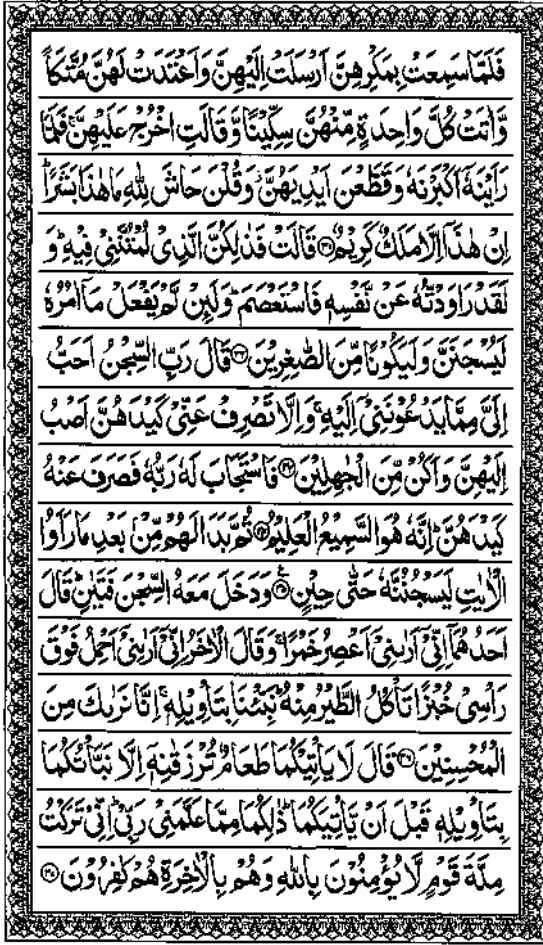 فَلَمَّا سَمِعَتْ بِمَكْرِهِنَّ اَرْسَلَتْ اِلَيْهِنَّ وَاَعْتَدَتْ لَهُنَّ مُتَّكَاً
وَّاٰتَتْ كُلَّ وَاحِدَةٍ مِّنْهُنَّ سِكِّيْنًا وَّقَالَتِ اخْرُجْ عَلَيْهِنَّ ۚ فَلَمَّا
رَاَيْنَهٗۤ اَكْبَرْنَهٗ وَقَطَّعْنَ اَيْدِيَهُنَّ ؗ وَقُلْنَ حَاشَ لِلّٰهِ مَا هٰذَا بَشَرًا ؕ
اِنْ هٰذَاۤ اِلَّا مَلَكٌ كَرِيْمٌ ﴿۳۱﴾ قَالَتْ فَذٰلِكُنَّ الَّذِيْ لُمْتُنَّنِيْ فِيْهِ ؕ وَ
لَقَدْ رَاوَدْتُّهٗ عَنْ نَّفْسِهٖ فَاسْتَعْصَمَ ؕ وَلَئِنْ لَّمْ يَفْعَلْ مَاۤ اٰمُرُهٗ
لَيُسْجَنَنَّ وَلَيَكُوْنًا مِّنَ الصّٰغِرِيْنَ ﴿۳۲﴾ قَالَ رَبِّ السِّجْنُ اَحَبُّ
اِلَيَّ مِمَّا يَدْعُوْنَنِيْۤ اِلَيْهِ ۚ وَاِلَّا تَصْرِفْ عَنِّيْ كَيْدَهُنَّ اَصْبُ
اِلَيْهِنَّ وَاَكُنْ مِّنَ الْجٰهِلِيْنَ ﴿۳۳﴾ فَاسْتَجَابَ لَهٗ رَبُّهٗ فَصَرَفَ عَنْهُ
كَيْدَهُنَّ ؕ اِنَّهٗ هُوَ السَّمِيْعُ الْعَلِيْمُ ﴿۳۴﴾ ثُمَّ بَدَا لَهُمْ مِّنْۢ بَعْدِ مَا رَاَوُا
الْاٰيٰتِ لَيَسْجُنُنَّهٗ حَتّٰى حِيْنٍ ﴿۳۵﴾ وَدَخَلَ مَعَهُ السِّجْنَ فَتَيٰنِ ؕ قَالَ
اَحَدُهُمَاۤ اِنِّيْۤ اَرٰىنِيْۤ اَعْصِرُ خَمْرًا ۚ وَقَالَ الْاٰخَرُ اِنِّيْۤ اَرٰىنِيْۤ اَحْمِلُ فَوْقَ
رَاْسِيْ خُبْزًا تَاْكُلُ الطَّيْرُ مِنْهُ ؕ نَبِّئْنَا بِتَاْوِيْلِهٖ ۚ اِنَّا نَرٰىكَ مِنَ
الْمُحْسِنِيْنَ ﴿۳۶﴾ قَالَ لَا يَاْتِيْكُمَا طَعَامٌ تُرْزَقٰنِهٖۤ اِلَّا نَبَّاْتُكُمَا
بِتَاْوِيْلِهٖ قَبْلَ اَنْ يَّاْتِيَكُمَا ؕ ذٰلِكُمَا مِمَّا عَلَّمَنِيْ رَبِّيْ ؕ اِنِّيْ تَرَكْتُ
مِلَّةَ قَوْمٍ لَّا يُؤْمِنُوْنَ بِاللّٰهِ وَهُمْ بِالْاٰخِرَةِ هُمْ كٰفِرُوْنَ ﴿۳۷﴾